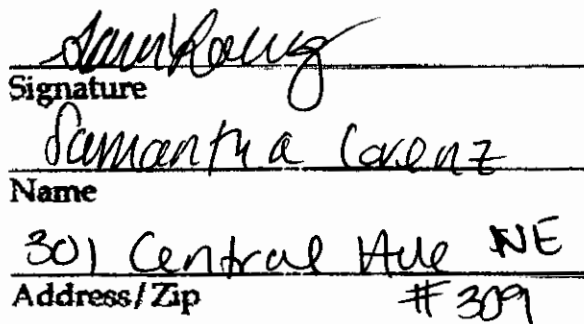 Signature
Samantha Lorenz
Name
301 Central Ave NE
Address/Zip #309